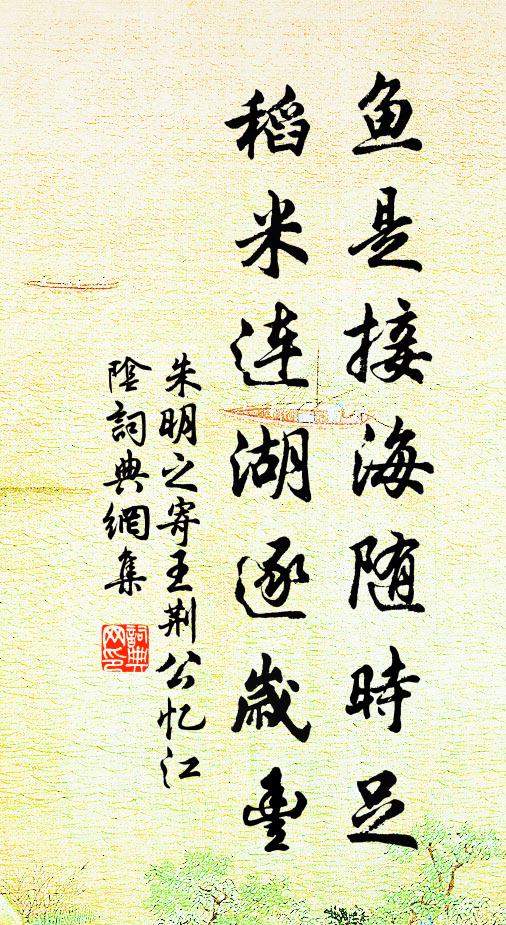 鱼是接海随時足
稻米连湖逐歲豊
朱明之寄王荆公忆江
陰詞典網集
詞典
网印